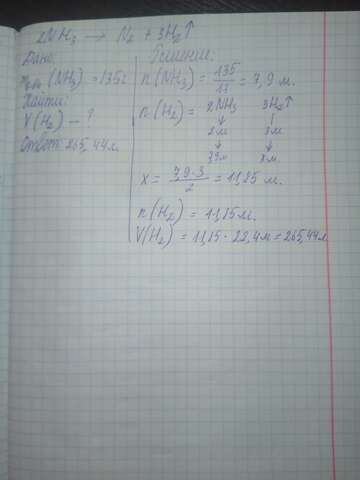 2NH₃ → N₂ + 3H₂↑
Дано:
(NH₃) = 135г
Найти:
V(H₂) — ?
Ответ: 265,44л.
Решение:
n(NH₃) = 135/17 = 7,9 м.
n(H₂) = 2NH₃ 3H₂↑
2м 3м
7,9м xм.
x = 7,9·3/2 = 11,85 м.
n(H₂) = 11,85м.
V(H₂) = 11,85 · 22,4м = 265,44л.